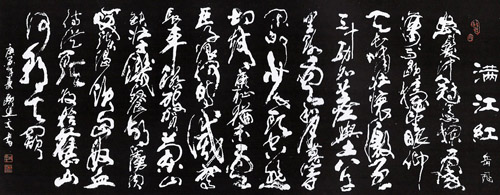 满江红 岳飞
怒发冲冠凭栏处潇
潇雨歇抬望眼仰
天长啸壮怀激烈
三十功名尘与土八千
里路云和月莫等
闲白了少年头空悲
切靖康耻犹未雪臣
子恨何时灭驾
长车踏破贺兰山
缺壮志饥餐胡虏肉
笑谈渴饮匈奴血
待从头收拾旧山
河朝天阙